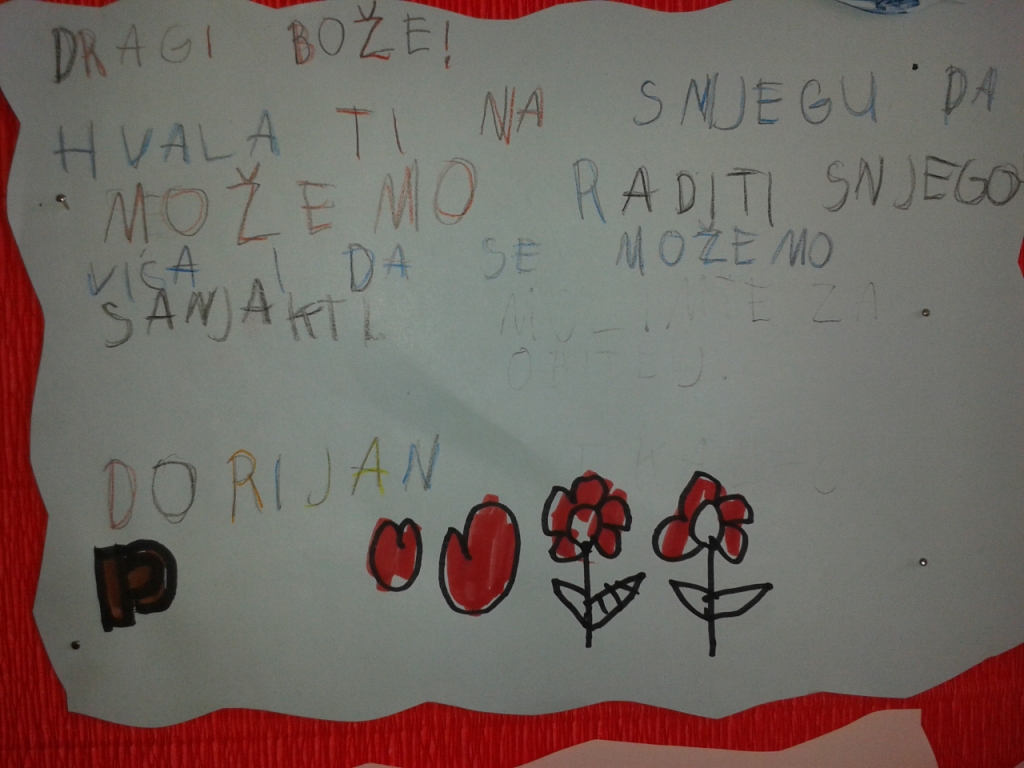 DRAGI BOŽE!
HVALA TI NA SNJEGU DA
MOŽEMO RADITI SNJEGO
VIĆA I DA SE MOŽEMO
SANJAKTI MOLIMTE ZA
OBITELJ.
DORIJAN
P